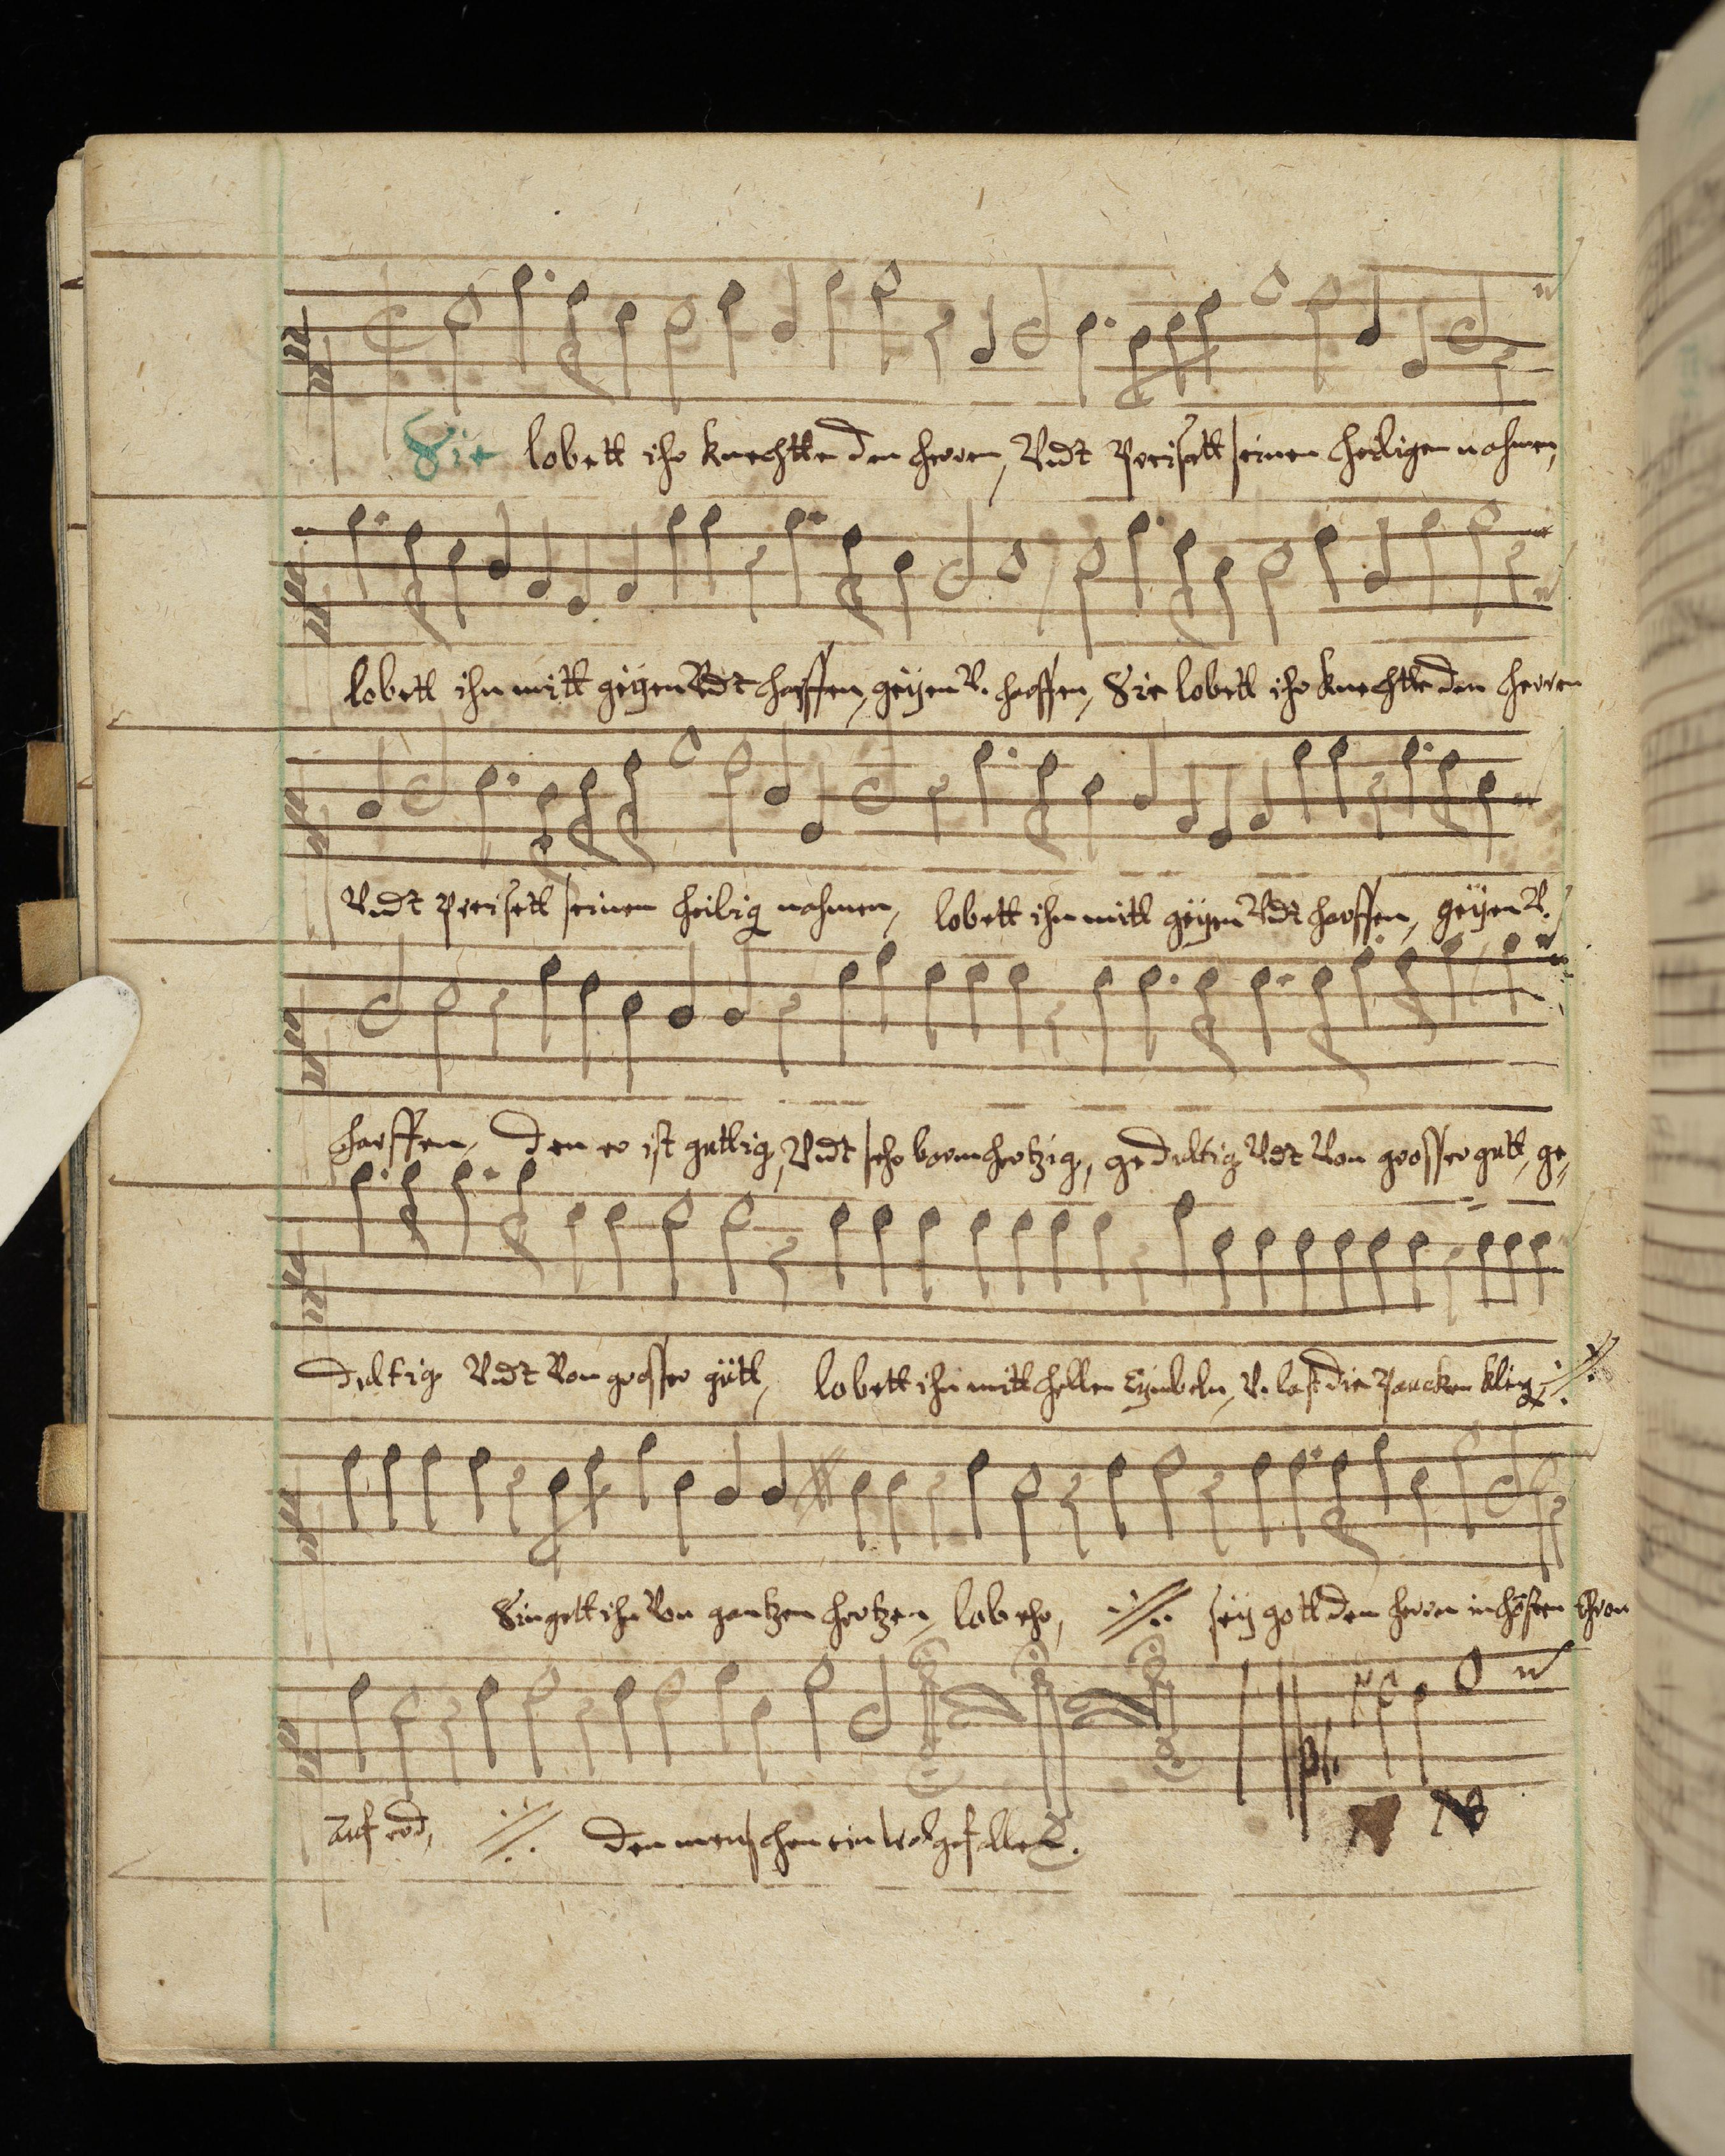 Sie lobett ihr knechtte den herren, Vndt Preisett seinen heiligen nahmen,
lobett ihn mitt geÿgen Vndt harffen, geÿen V. harffen, Sie lobett ihr knechtte den herren
Vndt Preisett seinen heilig nahmen, lobett ihn mitt geÿgen Vndt harffen, geÿen V.
harffen, den er ist guttig, Vndt sehr barmhertzig, gedultig Vndt Von grosser gutt, ge,
dultig Vndt Von grosser gütt, lobett ihn mitt hellen Cÿmbeln, V. last die Paucken kling
Singett ihn Von gantzen hertzen, lob ehr, seÿ gott den herrn in hösten thron
auf erd, den menschen ein wolgefallen.